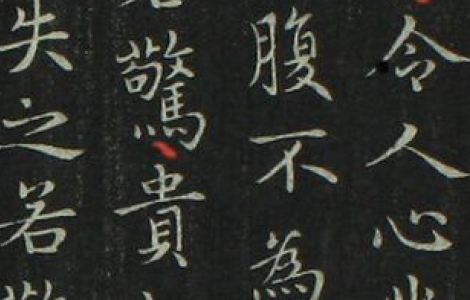 令人心
腹不為
驚貴
失之若